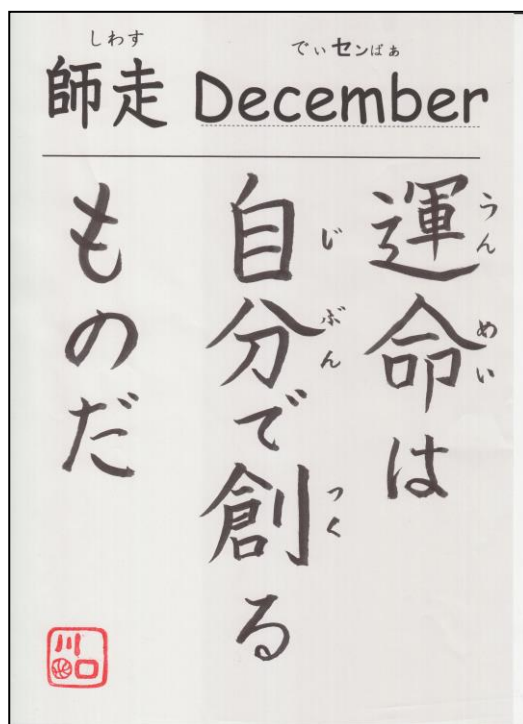 しわす でぃセンばぁ
師走 December
運命は
うんめい
自分で創る
じぶん つく
ものだ
川口